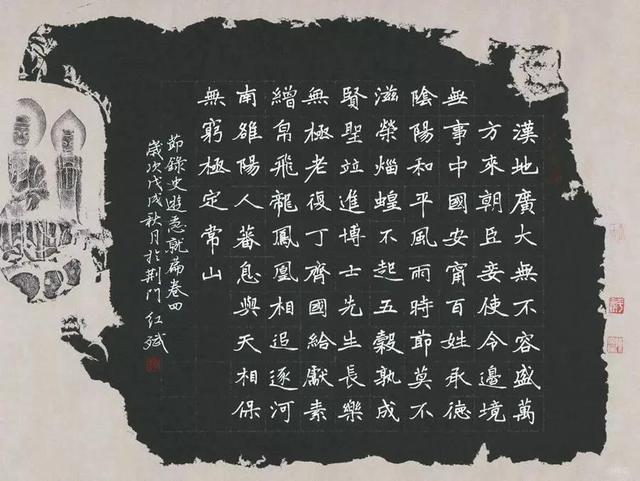 漢地廣大無不容盛萬
方來朝臣妾使令邊境
無事中國安甯百姓承德
陰陽和平風雨時節莫不
滋榮蝗不起五穀孰成
賢聖竝進博士先生長樂
無極老復丁齊國給獻素
繒帛飛龍鳳凰相追逐河
南雒陽人蕃息與天相保
無窮極定常山
節錄史遊急就篇卷四
歲次戊戌秋月於荊門紅斌